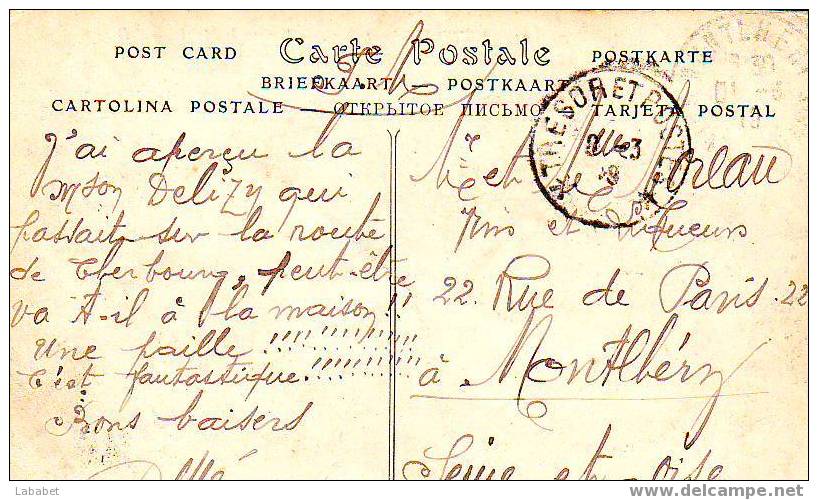 POST CARD Carte Postale POSTKARTE
BRIEFKAART POSTKAART
CARTOLINA POSTALE — ОТКРЫТОЕ ПИСЬМО TARJETA POSTAL
F. M.
TRESOR ET POSTES
J'ai aperçu la
mson Delizy qui
passait sur la route
de Cherbourg, peut-être
va t-il à la maison !!
Une paille !!!!!!!!!
c'est fantastique !!!!!!!!
Bons baisers
Mr et Moreau
Vins et Liqueurs
22 Rue de Paris. 22
à Montlhéry
Seine et Oise
Lababet
www.delcampe.net